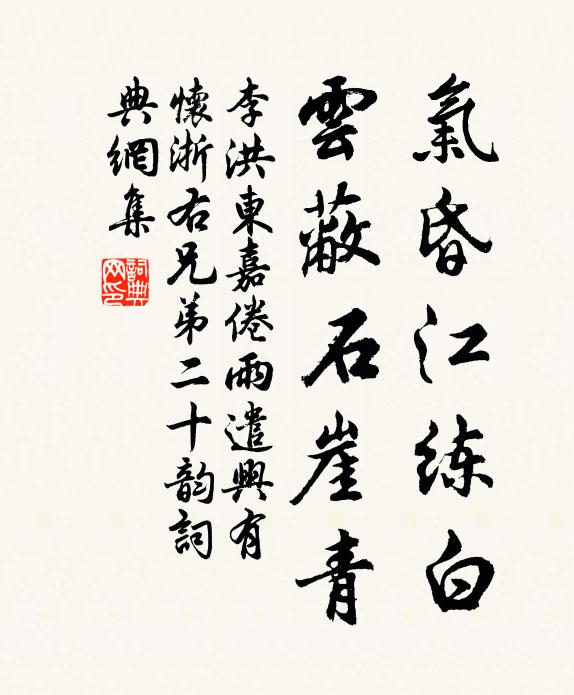 氣昏江练白
雲蔽石崖青
李洪東嘉倦雨遣興有
懷浙右兄弟二十韵詞
典網集
詞典网印